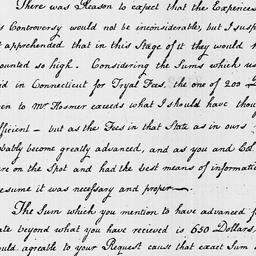 There was Reason to expect that the Expences
s Controversy would not be inconsiderable, but I susp
t apprehended that in this Stage of it they would
ounted so high. Considering the Sums which us
id in Connecticut for Tryal Fees, the one of 200
en to Mr Hosmer exceeds what I should have thou
fficient — but as the Fees in that State as in ours
obably become greatly advanced, and as you and Col
ere on the Spot and had the best means of informati
resume it was necessary and proper —
The Sum which you mention to have advanced f
ate beyond what you have recieved is 650 Dollars,
ould agreable to your Request cause that exact Sum